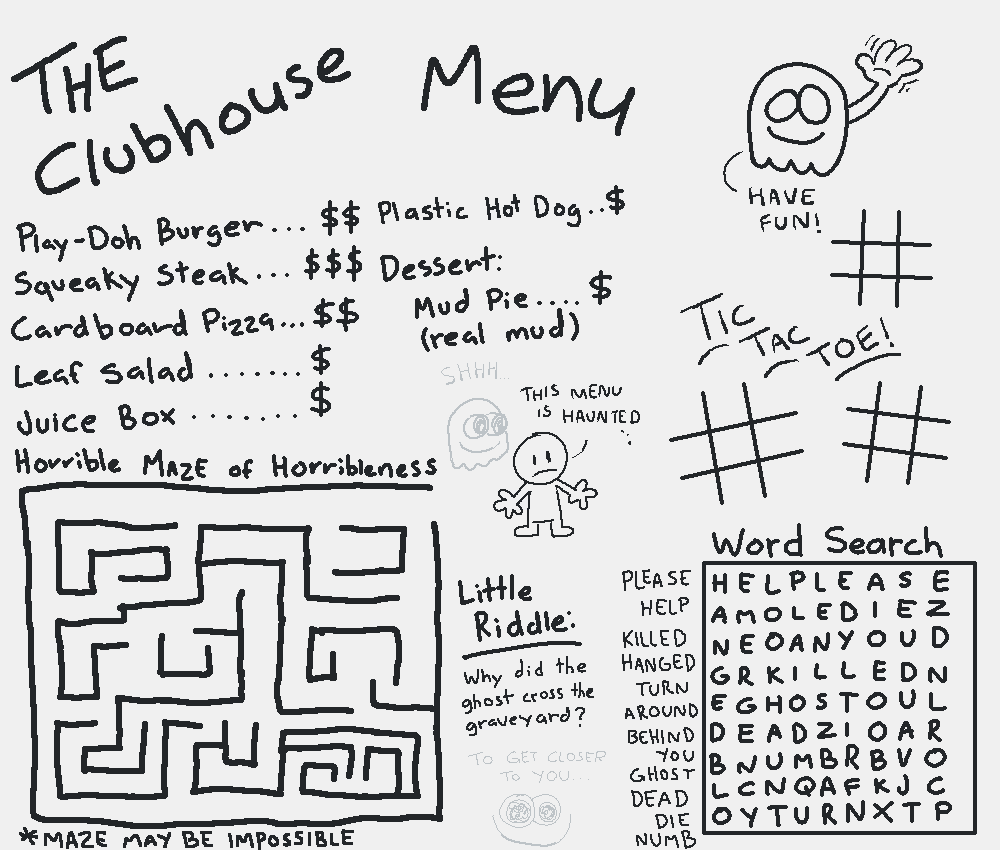 THE
Clubhouse Menu
Play-Doh Burger... $$
Squeaky Steak... $$$
Cardboard Pizza... $$
Leaf Salad ....... $
Juice Box ....... $
Plastic Hot Dog..$
Dessert:
Mud Pie.... $
(real mud)
HAVE
FUN!
TIC
TAC
TOE!
SHHH...
THIS MENU
IS HAUNTED
Horrible MAZE of Horribleness
*MAZE MAY BE IMPOSSIBLE
Little
Riddle:
Why did the
ghost cross the
graveyard?
TO GET CLOSER
TO YOU...
Word Search
PLEASE
HELP
KILLED
HANGED
TURN
AROUND
BEHIND
YOU
GHOST
DEAD
DIE
NUMB
H E L P L E A S E
A M O L E D I E Z
N E O A N Y O U D
G R K I L L E D N
E G H O S T O U L
D E A D Z I O A R
B N U M B R B V O
L C N Q A F K J C
O Y T U R N X T P